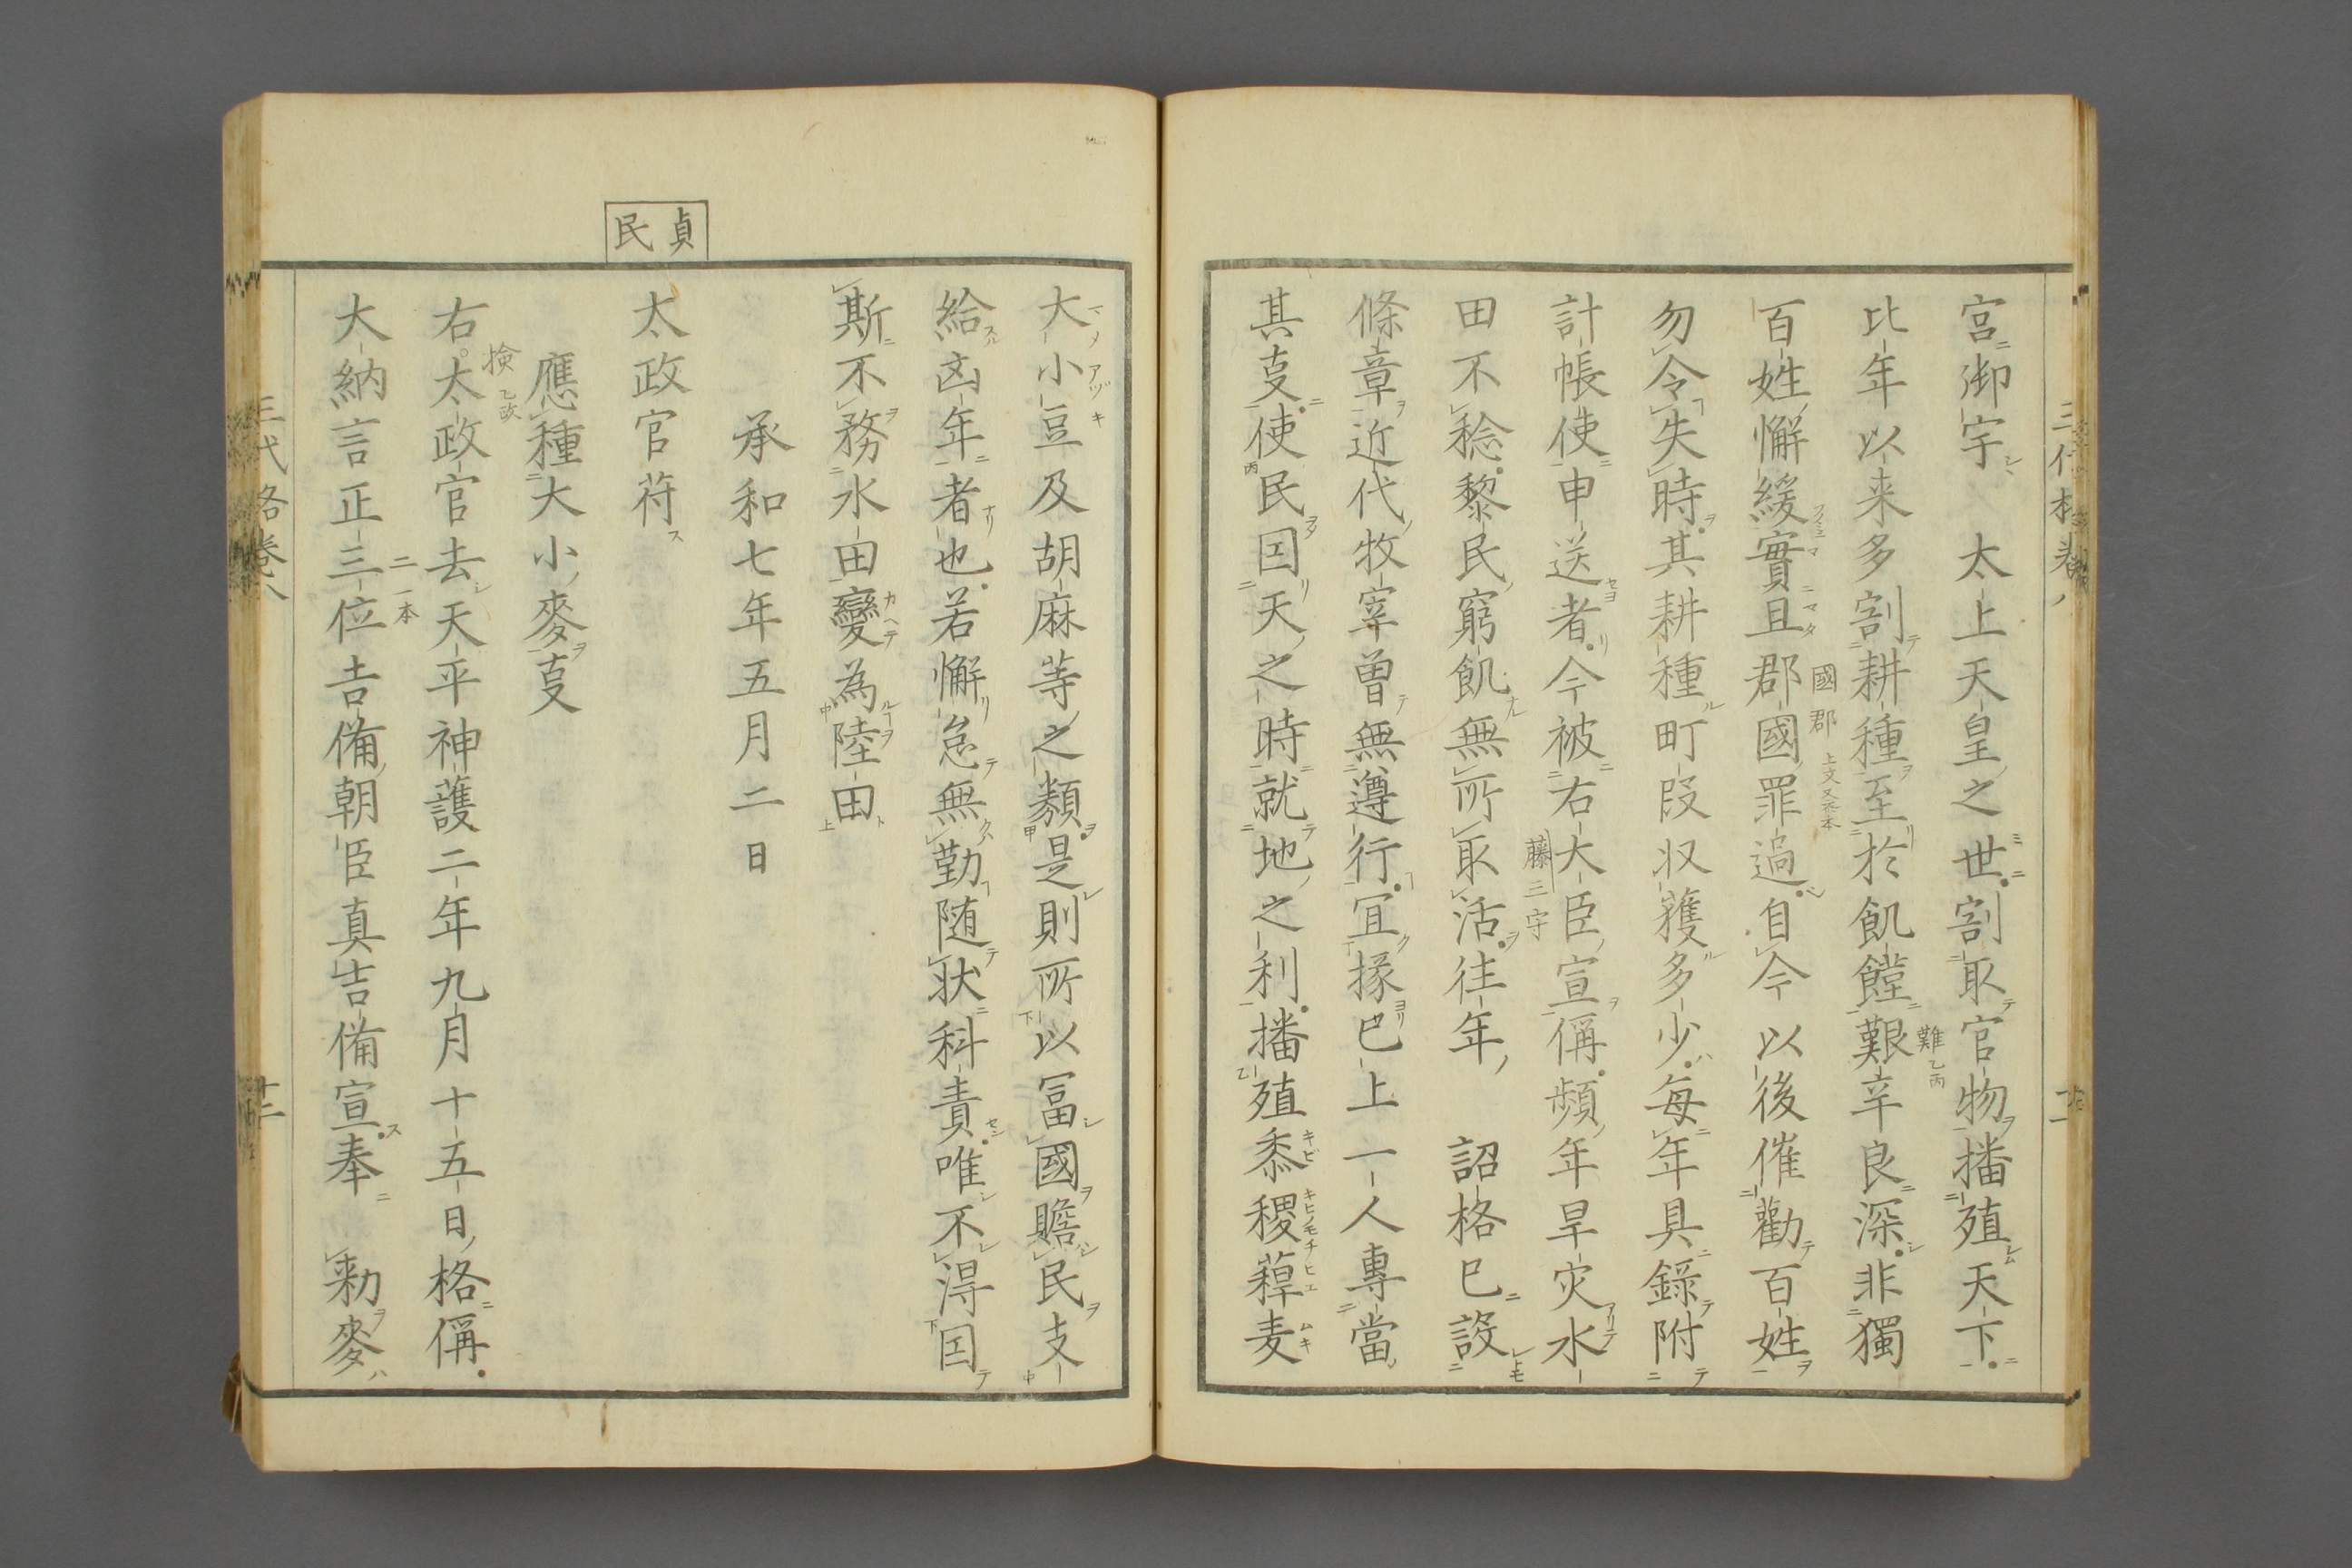 宮御宇　太上天皇之世割取官物播殖天下
比年以来多割耕種至於飢饉艱辛良深非獨
百姓懈緩實且郡國罪過自今以後催勸百姓
勿令失時其耕種町段収獲多少毎年具錄附
計帳使申送者今被右大臣宣偁頻年旱灾水
田不稔黎民窮飢無所取活徃年　詔格已設
條章近代牧宰曽無遵行冝掾已上一人專當
其㕝使民因天之時就地之利播殖黍稷稗麦
大小豆及胡麻䓁之類是則所以冨國贍民支
給凶年者也若懈怠無勤随状科責唯不淂因
斯不務水田變為陸田
承和七年五月二日
貞民
太政官符
應種大小麥㕝
右太政官去天平神護二年九月十五日格偁
大納言正三位吉備朝臣真吉備宣奉　勅麥
國郡
難乙丙
藤三字
検乙改
二一本
三代格巻八
十二